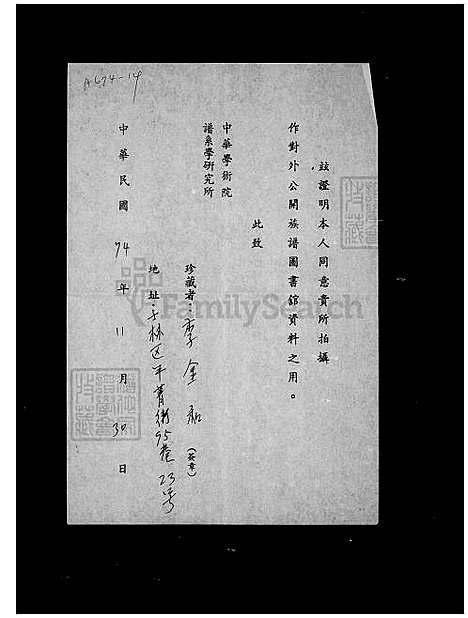 A674-14
茲證明本人同意貴所拍攝
作對外公開族譜圖書館資料之用。
此致
中華學術院
譜系學研究所
珍藏者：李金
（簽章）
地址：士林区平菁街95巷23号
中華民國74年11月30日
FamilySearch